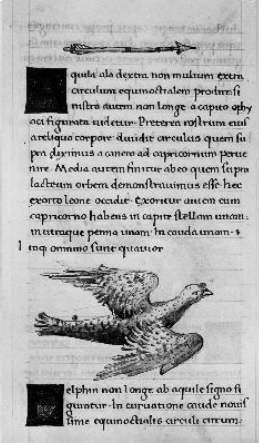 quila ala dextra non multum extra
circulum equinoctialem prodire si
nistra autem non longe a capite ophy
oci figurata uidetur. Preterea rostrum eius
a reliquo corpore diuidit circulus quem su
pra diximus a cancro ad capricornum perue
nire. Media autem finitur ab eo quem supra
lacteum orbem demonstrauimus esse. hec
exorto leone occidit. Exoritur autem cum
capricorno habens in capite stellam unam.
in utraque penna unam. In cauda unam.
omnino sunt quatuor
elphin non longe ab aquile signo fi
guratur. In curuatione caude nouis
sime equinoctialis circuli circum